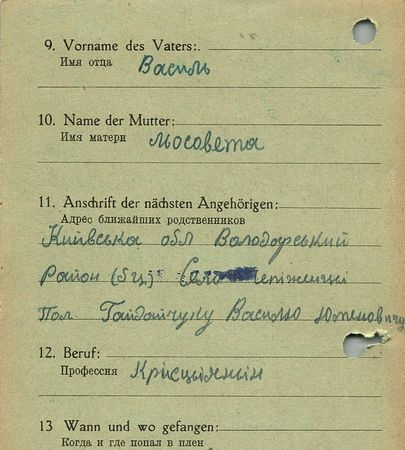 9. Vorname des Vaters:
Имя отца Василь
10. Name der Mutter:
Имя матери
11. Anschrift der nächsten Angehörigen:
Адрес ближайших родственников
Київська обл Володарський
Район Село
Пол. Гайдайчуку Василю
12. Beruf:
Профессия
13 Wann und wo gefangen:
Когда и где попал в плен